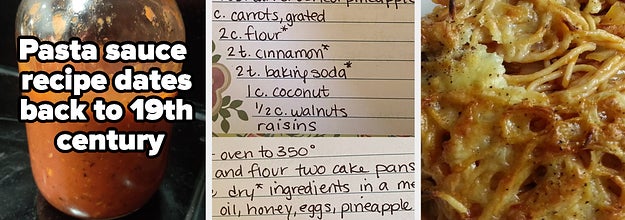 Pasta sauce
recipe dates
back to 19th
century
pineapple
c. carrots, grated
2 c. flour*
2 t. cinnamon*
2 t. baking soda*
1 c. coconut
1/2 c. walnuts
raisins
oven to 350°
and flour two cake pans
dry* ingredients in a
oil, honey, eggs, pineapple